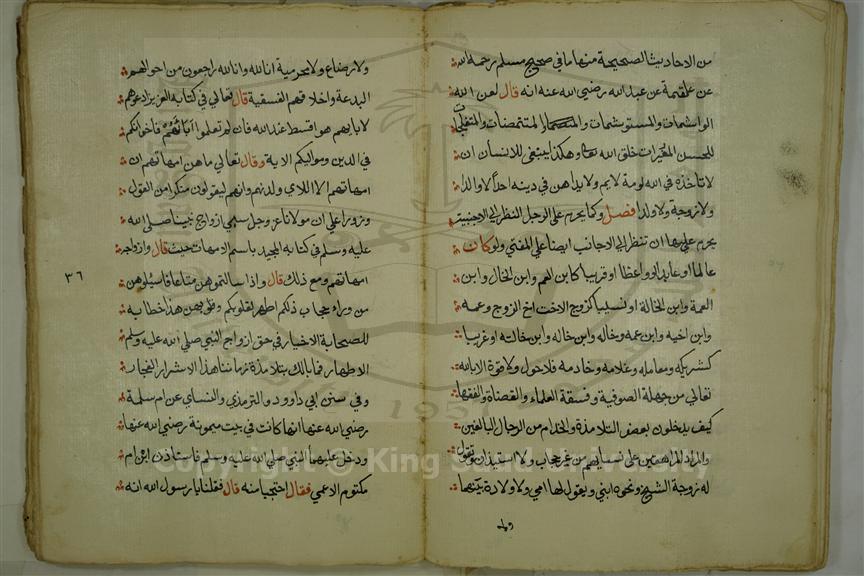 من الاحاديث الصحيحة منها ما في صحيح مسلم رحمه الله
عن علقمة عن عبد الله رضي الله عنه انه قال لعن الله
الواشمات والمستوشمات والمتنمصات والمتفلجات
للحسن المغيرات خلق الله تعالى وهكذا ينبغي للانسان ان
لا تاخذه في الله لومة لايم ولا يداهن في دينه احدا لا والدا
ولا زوجة ولا ولدا فصل وكما يحرم على الرجل النظر الى الاجنبية
يحرم عليها ان تنظر الى الاجانب ايضا على المفتي ولو كان
عالما او عابدا او واعظا او قريبا كابن العم وابن الخال وابن
العمة وابن الخالة او نسيبا كزوج الاخت اخ الزوج وعمه
وابن اخيه وابن عمه وخاله وابن خاله وابن خالته او غريبا
كشريكه ومعامله وغلامه وخادمه فلا حول ولا قوة الا بالله
تعالى من جهلة الصوفية وفسقة العلماء والقضاة والفقها
كيف يدخلون بعض التلامذة والخدام من الرجال البالغين
والمراد المراهقين على نسايهم من غير حجاب ولا استيذان وتقول
له زوجة الشيخ ونحوه ابني ويقول لها امي ولا ولادة بينهما
ولا
ولا رضاع ولا محرمية انا لله وانا اليه راجعون من احوالهم
البدعة واخلاقهم الفسقية قال تعالى في كتابه العزيز ادعوهم
لابايهم هو اقسط عند الله فان لم تعلموا آباءهم فاخوانكم
في الدين ومواليكم الاية وقال تعالى ما هن امهاتهم ان
امهاتهم الا اللاي ولدنهم وانهم ليقولون منكرا من القول
وزورا على ان مولانا عز وجل سمى ازواج نبينا صلى الله
عليه وسلم في كتابه المجيد باسم الامهات حيث قال وازواجه
امهاتهم ومع ذلك قال واذا سالتموهن متاعا فاسئلوهن
من وراء حجاب ذلكم اطهر لقلوبكم وقلوبهن هذا خطابه
للصحابة الاخيار في حق ازواج النبي صلى الله عليه وسلم
الاطهار فما بالك بتلامذة زماننا هذا الاشرار الفجار
وفي سنن ابي داوود والترمذي والنساي عن ام سلمة
رضي الله عنها انها كانت في بيت ميمونة رضي الله عنها
ودخل عليهما النبي صلى الله عليه وسلم فاستاذن ابن ام
مكتوم الاعمى فقال احتجبا منه قال فقلنا يا رسول الله انه
٣٦
1957
Copyright © King Saud University